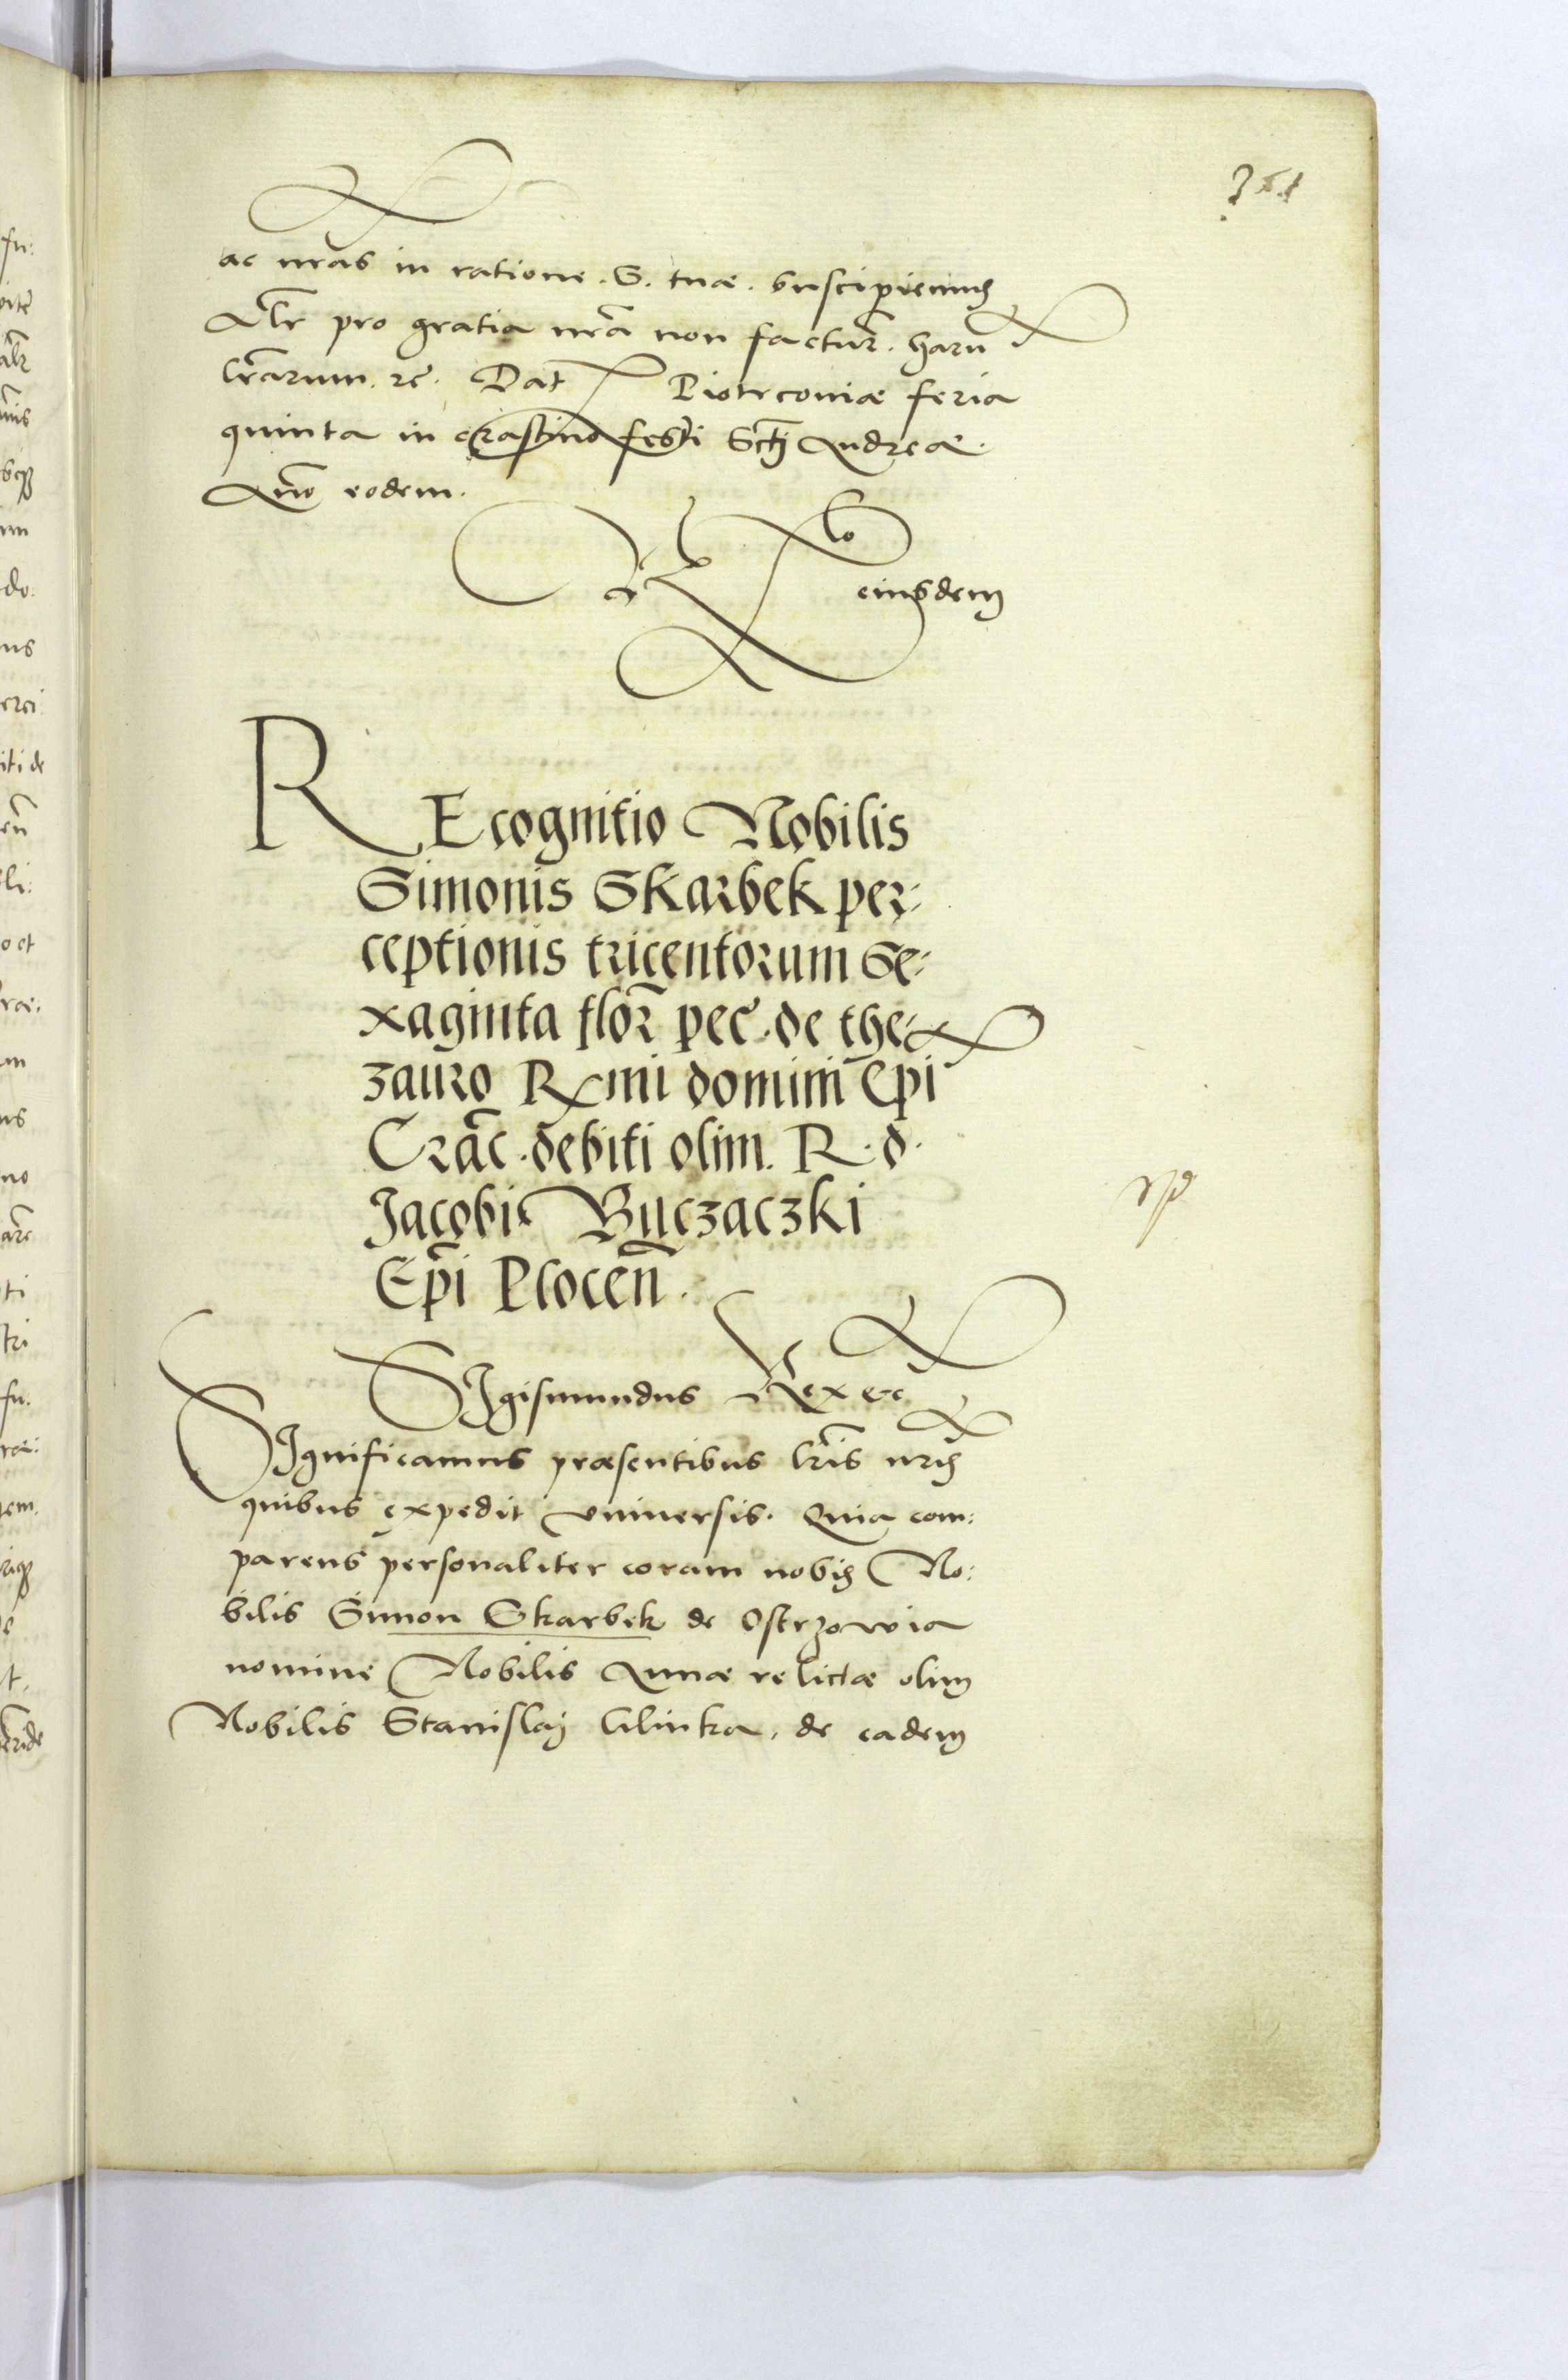 351
ac nras in ratione. S. tuæ. suscipiemus
Alr pro gratia nrã non factur̃. harũ
lr̃arum. rẽ. Dat Piotrconiæ feria
quinta in crastino festi Scti Andreæ.
Anno eodem.
Rlo eiusdem
REcognitio Nobilis
Simonis Skarbek per:
ceptionis tricentorum Se:
xaginta flor̃ pec̃. de the:
zauro Rmi domini Epi
Crac̃. debiti olim. R. d.
Jacobi Buczaczki
Ep̃i Plocen̄.
SIgismundus Rex etc
SIgnificamus præsentibus lr̃is nris
quibus expedit vniuersis. Quia com:
parens personaliter coram nobis No:
bilis Simon Skarbek de Ostrzowia
nomine Nobilis Annæ relictæ olim
Nobilis Stanislaj Glinka. de eadem